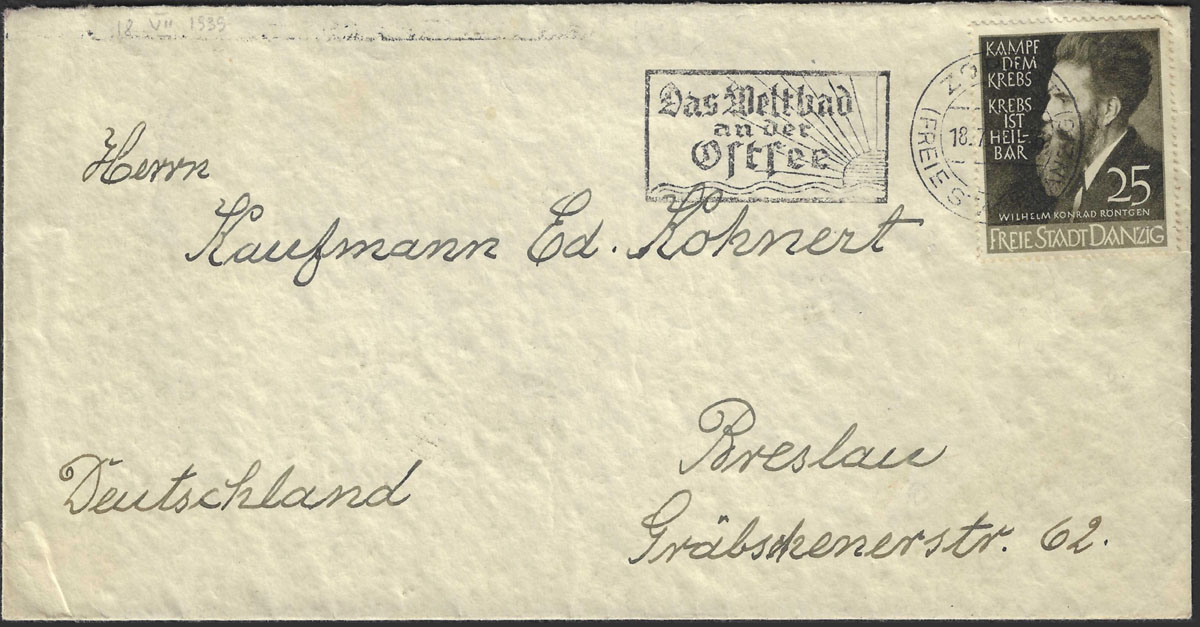 18 VII 1939
Das Weltbad
an der
Ostsee
18.7
(FREIE S
KAMPF
DEM
KREBS
KREBS
IST
HEIL-
BAR
25
WILHELM KONRAD RÖNTGEN
FREIE STADT DANZIG
Herrn
Kaufmann Ed. Kohnert
Breslau
Deutschland
Gräbschenerstr. 62.